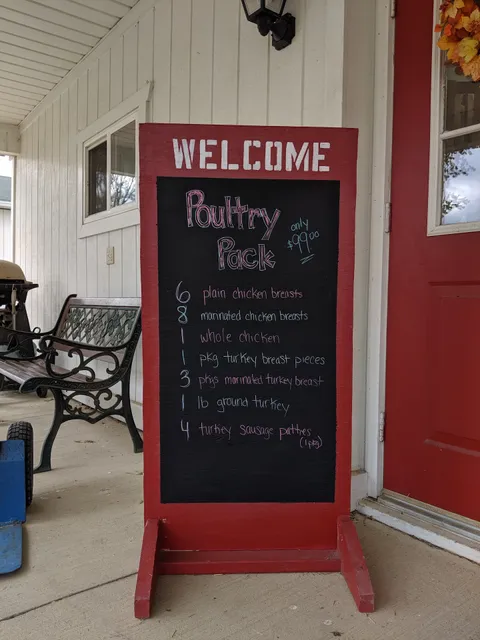 WELCOME
Poultry
Pack
only
$99.00
6 plain chicken breasts
8 marinated chicken breasts
1 whole chicken
1 pkg turkey breast pieces
3 pkgs marinated turkey breast
1 lb ground turkey
4 turkey sausage patties
(1 pkg)